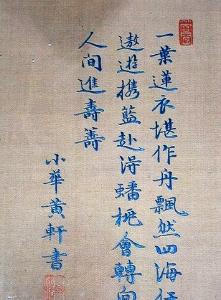 一葉蓮衣堪作舟飄然四海任
遨遊携藍赴得蟠桃會轉向
人間進壽籌
小華黄軒書